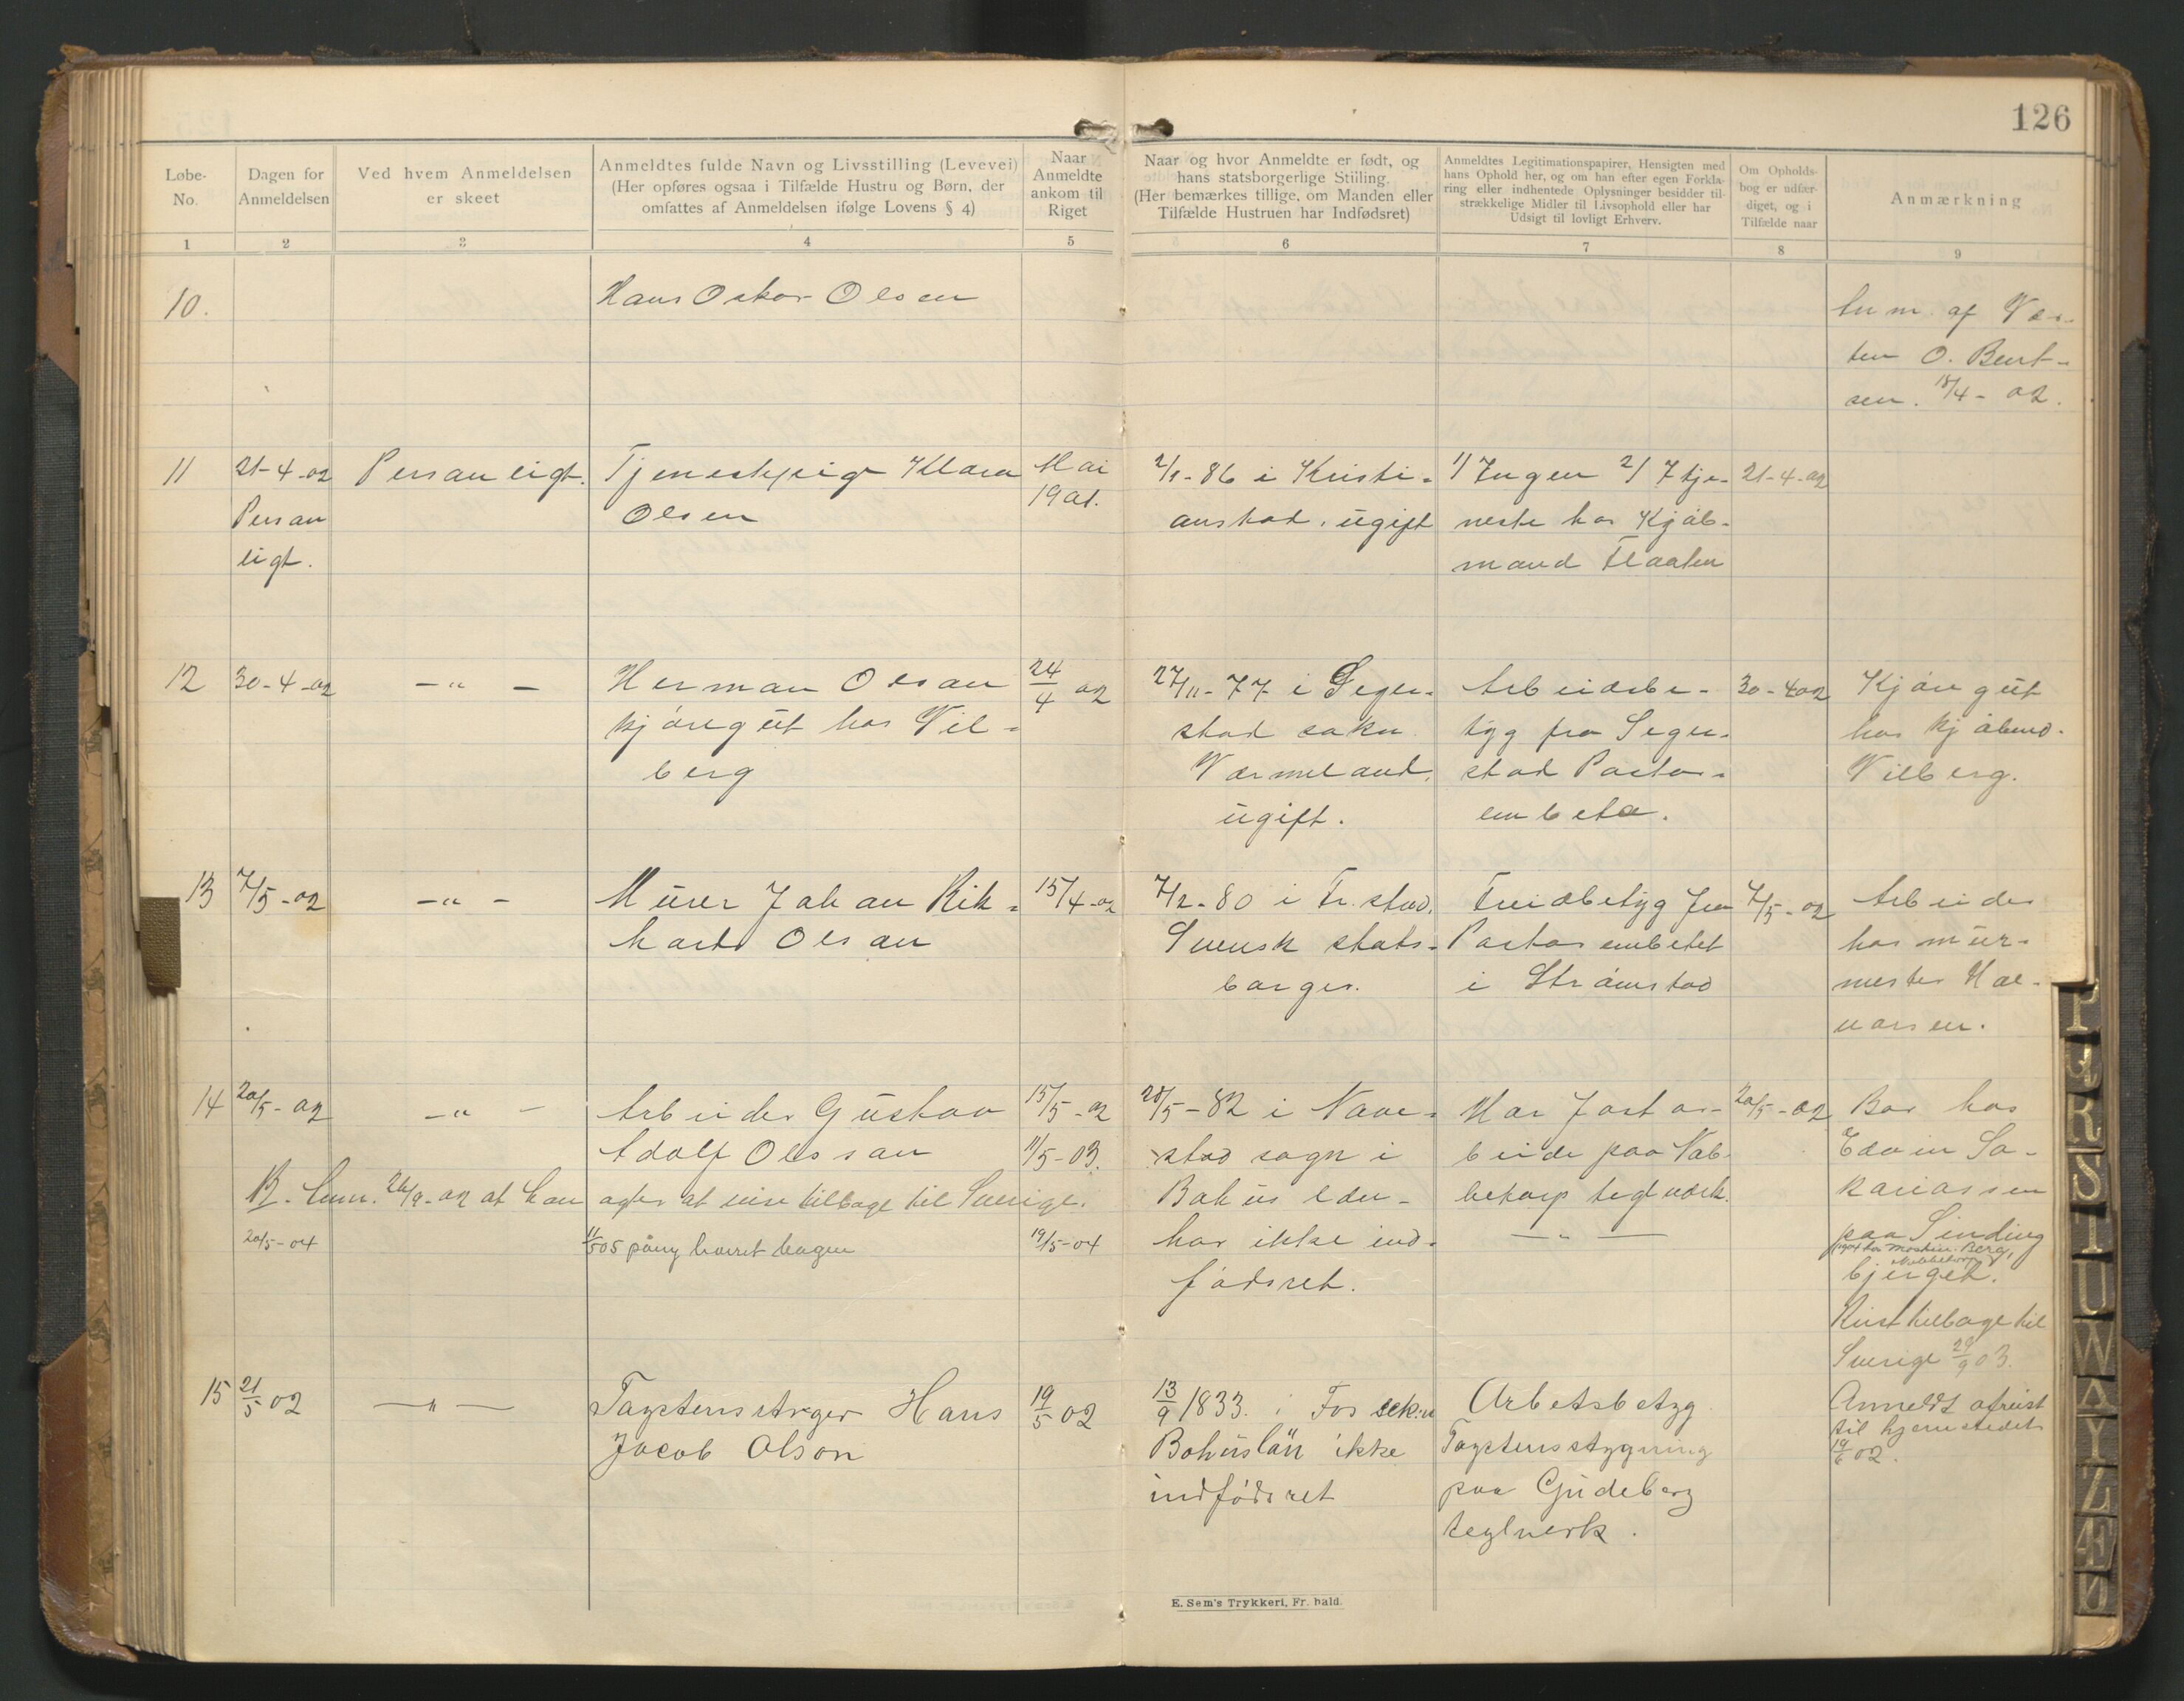 126
Løbe-
No.
Dagen for
Anmeldelsen
Ved hvem Anmeldelsen
er skeet
Anmeldtes fulde Navn og Livsstilling (Levevei)
(Her opføres ogsaa i Tilfælde Hustru og Børn, der
omfattes af Anmeldelsen ifølge Lovens § 4)
Naar
Anmeldte
ankom til
Riget
Naar og hvor Anmeldte er født, og
hans statsborgerlige Stilling.
(Her bemærkes tillige, om Manden eller
Tilfælde Hustruen har Indfødsret)
Anmeldtes Legitimationspapirer, Hensigten med
hans Ophold her, og om han efter egen Forkla-
ring eller indhentede Oplysninger besidder til-
strækkelige Midler til Livsophold eller har
Udsigt til lovligt Erhverv.
Om Opholds-
bog er udfær-
diget, og i
Tilfælde naar
Anmærkning
1 2 3 4 5 6 7 8 9
10.
Hans Oskar Olsen
af Vær-
ten O. Bent-
sen. 18/4 - 02.
11
21-4-02
Person
ligt.
Personligt.
Tjenestepige Klara
Olsen
Mai
1901.
2/1-86 i Kristi-
anstad. ugift
1/ Ingen 2/ I tje-
neste hos Kjøb-
mand Flaaten
21-4-02
12
30-4-02
-"-
Herman Olsan
kjøregut hos Vil-
berg
24/4 02
27/11-77 i Seger-
stad sokn
Værmeland.
ugift.
Arbeidsbe-
tyg fra Seger-
stad Pastor-
embete.
30-4 02
Kjøregut
hos kjøbmd.
Vilberg.
13
7/5-02
-"-
Murer Johan Rik-
hard Olsan
15/4-02
7/2-80 i Fr.stad.
Svensk stats-
borger.
Freidbetyg fra
Pastorembetet
i Strömstad
7/5-02
Arbeider
hos mur-
mester Hal-
vorsen.
14
20/5-02
-"-
Arbeider Gustav
Adolf Olssan
15/5-02
11/5-03.
28/5-82 i Nave-
stad sogn i
Bohus len-
har ikke ind-
fødsret.
Har fast ar-
beide paa Nab-
betorp teglverk.
-"-
20/5-02
Bor hos
Edvin Sa-
kariassen
paa Sinding
bjerget.
Nabbetorp
Reist tilbage til
Sverige 29/9 03.
26/9-02 at han agter at reise tilbage til Sverige.
20/5-04
11/5 05
19/5-04
15
21/5 02
-"-
Hans
Jacob Olson
19/5 02
13/9 1833. i Fos sokn
Bohuslän ikke
indfødsret
Arbetsbetyg
paa Gudeberg
teglverk.
Anmeldt afreist
til hjemstedet
19/6 02.
E. Sem's Trykkeri, Fr. hald.
P
R
S
T
U
W
Y
Z
Æ
Ø